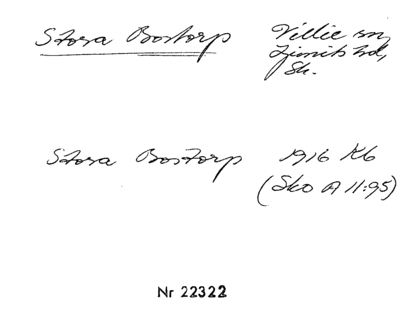 Stora Bostorp
Villie sn,
Ljunits hd,
Sk.
Stora Bostorp 1916 Kb
(Sko A 11:95)
Nr 22322